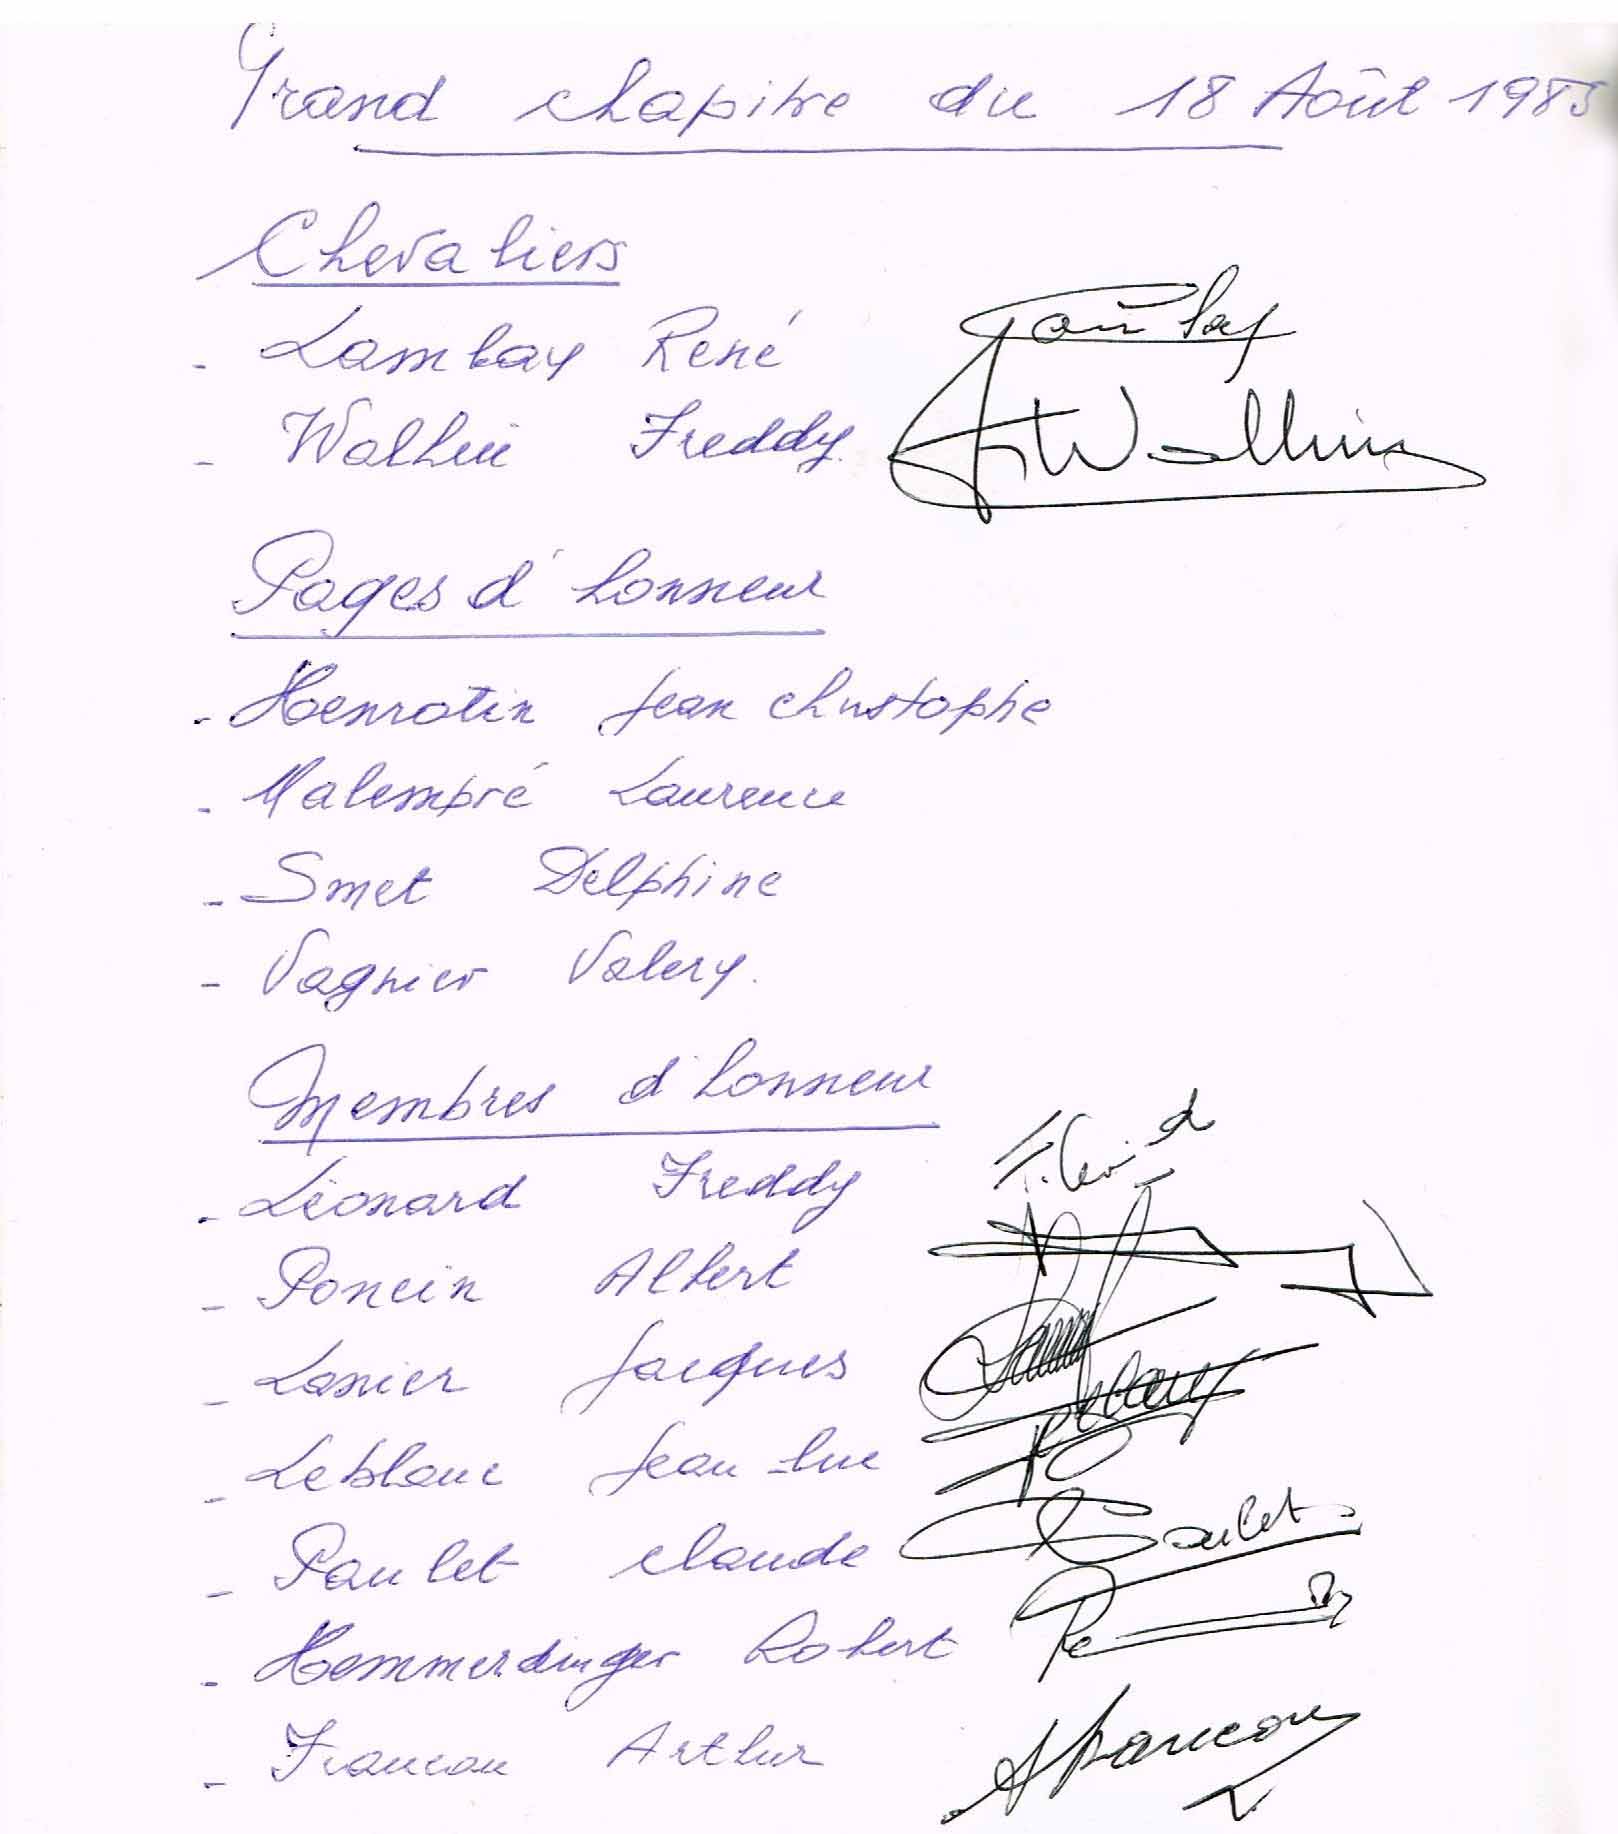 Grand chapitre du 18 Août 1985
Chevaliers
- Lambay René
- Wathin Freddy.
Pages d'honneur
- Henrotin Jean christophe
- Malempré Laurence
- Smet Delphine
- Vagnier Valery.
Membres d'honneur
- Léonard Freddy
- Poncin Albert
- Lanier Jacques
- Leblanc Jean-luc
- Paulet claude
- Hemmerdinger Robert
- Francou Arthur